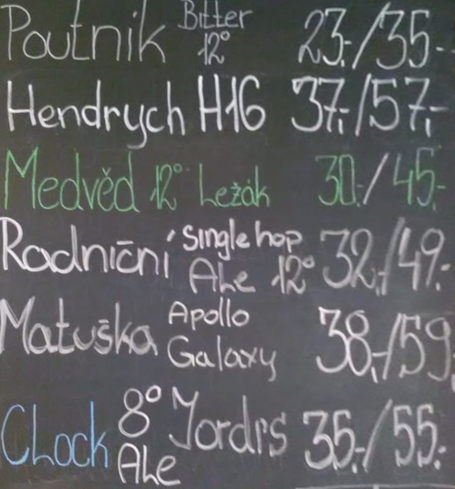 Poutník Bitter 12° 23.-/35.-
Hendrych H16 37,-/57,-
Medvěd 12° Ležák 30.-/45.-
Radniční Single hop Ale 12° 32,-/49.-
Matuška Apollo Galaxy 38,-/59,-
CLock 8° Ale Yordrs 35.-/55.-